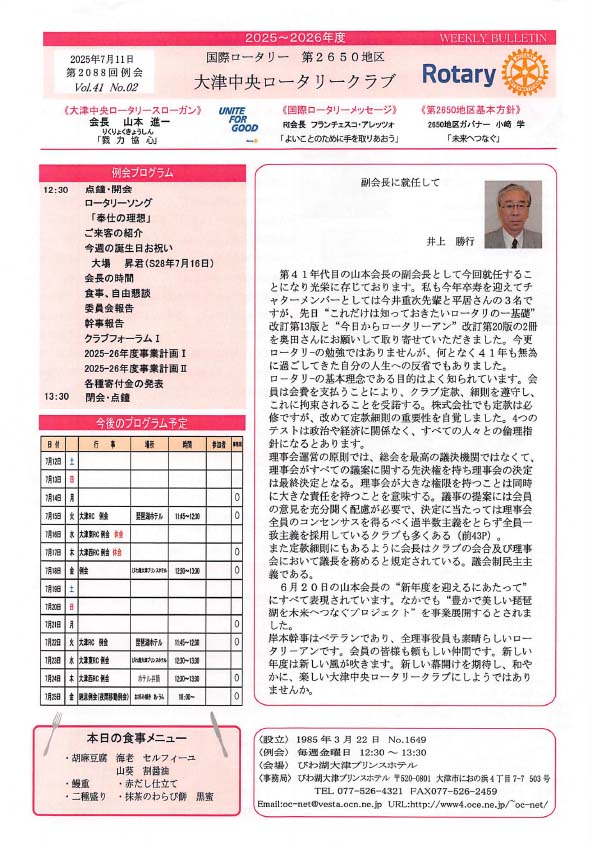 2025～2026年度
WEEKLY BULLETIN
2025年7月11日
第２０８８回例会
Vol.41 No.02
国際ロータリー 第２６５０地区
大津中央ロータリークラブ
Rotary
《大津中央ロータリースローガン》
会長 山本 進一
りくりょくきょうしん
「戮 力 協 心」
UNITE
FOR
GOOD
《国際ロータリーメッセージ》
RI会長 フランチェスコ・アレッツォ
「よいことのために手を取りあおう」
《第2650地区基本方針》
2650地区ガバナー 小﨑 学
「未来へつなぐ」
例会プログラム
12:30 点鐘・開会
ロータリーソング
「奉仕の理想」
ご来客の紹介
今週の誕生日お祝い
大場 昇君(S28年7月16日)
会長の時間
食事、自由懇談
委員会報告
幹事報告
クラブフォーラムⅠ
2025-26年度事業計画Ⅰ
2025-26年度事業計画Ⅱ
各種寄付金の発表
13:30 閉会・点鐘
今後のプログラム予定
日 付 行 事 場所 時間 参加者 事務局
7月12日 土
7月13日 日
7月14日 月 〇
7月15日 火 大津RC 例会 琵琶湖ホテル 11:45～12:30 〇
7月16日 水 大津東RC 例会 休会
7月17日 木 大津西RC 例会 休会 〇
7月18日 金 例会 びわ湖大津プリンスホテル 12:30～13:30 〇
7月19日 土
7月20日 日
7月21日 月 〇
7月22日 火 大津RC 例会 琵琶湖ホテル 11:45～12:30 〇
7月23日 水 大津東RC 例会 びわ湖大津プリンスホテル 12:30～13:30
7月24日 木 大津西RC 例会 ホテル井筒 12:30～13:30 〇
7月25日 金 納涼例会(夜間移動例会) お好み焼き あうん 18:00～ 〇
副会長に就任して
井上 勝行
第４１年代目の山本会長の副会長として今回就任するこ
とになり光栄に存じております。私も今年卒寿を迎えてチ
ャターメンバーとしては今井重次先輩と平居さんの３名で
すが、先日“これだけは知っておきたいロータリの一基礎”
改訂第13版と“今日からロータリーアン”改訂第20版の2冊
を奥田さんにお願いして取り寄せていただきました。今更
ロータリ－の勉強ではありませんが、何となく４１年も無為
に過ごしてきた自分の人生への反省でもありました。
ロータリ－の基本理念である目的はよく知られています。会
員は会費を支払うことにより、クラブ定款、細則を遵守し、
これに拘束されることを受諾する。株式会社でも定款は必
修ですが、改めて定款細則の重要性を自覚しました。4つの
テストは政治や経済に関係なく、すべての人々との倫理指
針になるとあります。
理事会運営の原則では、総会を最高の議決機関ではなくて、
理事会がすべての議案に関する先決権を持ち理事会の決定
は最終決定となる。理事会が大きな権限を持つことは同時
に大きな責任を持つことを意味する。議事の提案には会員
の意見を充分聞く配慮が必要で、決定に当たっては理事会
全員のコンセンサスを得るべく過半数主義をとらず全員一
致主義を採用しているクラブも多くある（前43P）。
また定款細則にもあるように会長はクラブの会合及び理事
会において議長を務めると規定されている。議会制民主主
義である。
６月２０日の山本会長の“新年度を迎えるにあたって”
にすべて表現されています。なかでも“豊かで美しい琵琶
湖を未来へつなぐプロジェクト”を事業展開するとされまし
た。
岸本幹事はベテランであり、全理事役員も素晴らしいロー
タリ－アンです。会員の皆様も頼もしい仲間です。新しい
年度は新しい風が吹きます。新しい幕開けを期待し、和や
かに、楽しい大津中央ロータリークラブにしようではあり
ませんか。
本日の食事メニュー
・胡麻豆腐 海老 セルフィーユ
山葵 割醤油
・鰻重 ・赤だし仕立て
・二種盛り ・抹茶のわらび餅 黒蜜
〈設立〉 1985 年 3 月 22 日 No.1649
〈例会〉 毎週金曜日 12:30 ～ 13:30
〈会場〉 びわ湖大津プリンスホテル
〈事務局〉 びわ湖大津プリンスホテル 〒520-0801 大津市におの浜 4 丁目 7-7 503 号
TEL 077-526-4321 FAX077-526-2459
Email:oc-net@vesta.ocn.ne.jp URL:http://www4.oce.ne.jp/~oc-net/